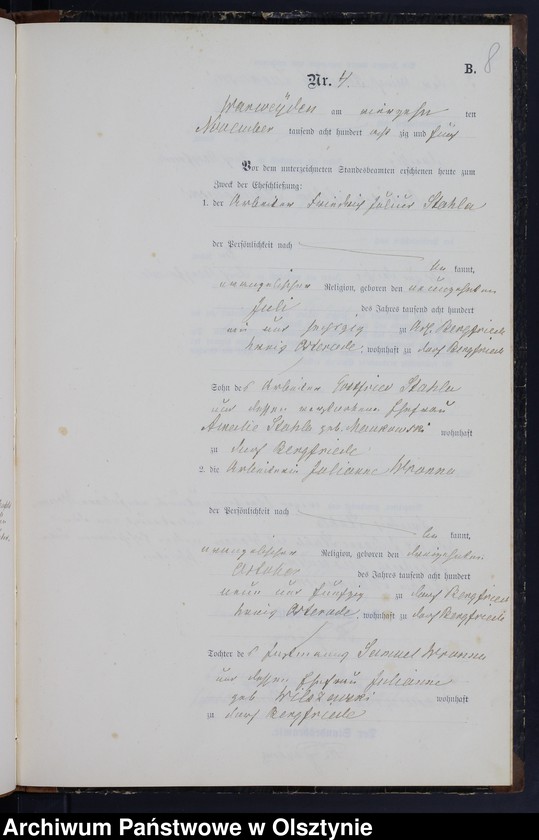 B. 8
Nr. 4.
Warweyden am vierzehn ten
November tausend acht hundert acht zig und fünf
Vor dem unterzeichneten Standesbeamten erschienen heute zum
Zweck der Eheschließung:
1. der Arbeiter Friedrich Julius Stahla
der Persönlichkeit nach
be kannt,
evangelischer Religion, geboren den neunzehnten
Juli des Jahres tausend acht hundert
ein und sechszig zu Dorf Bergfriede
Kreis Osterode, wohnhaft zu Dorf Bergfriede
Sohn des Arbeiter Gottfried Stahla
und dessen verstorbene Ehefrau
Amalie Stahla geb. Mankowski wohnhaft
zu Dorf Bergfriede
2. die Arbeiterin Julianne Wronna
der Persönlichkeit nach
be kannt,
evangelischer Religion, geboren den dreizehnten
October des Jahres tausend acht hundert
neun und fünfzig zu Dorf Bergfriede
Kreis Osterode, wohnhaft zu Dorf Bergfriede
Tochter des Samuel Wronna
und dessen Ehefrau Julianne
geb. wohnhaft
zu Dorf Bergfriede
Archiwum Państwowe w Olsztynie